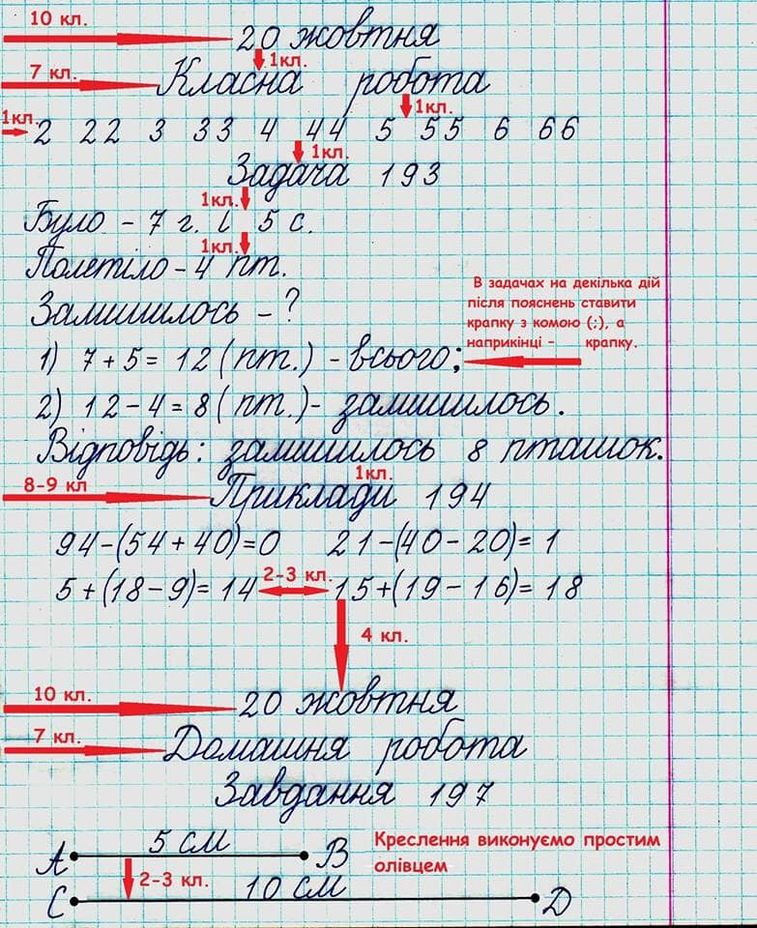 10 кл. 20 жовтня
1кл.
7 кл. Класна робота
1кл.
1кл. 2 22 3 33 4 44 5 55 6 66
1кл.
Задача 193
1кл.
Було - 7 г. і 5 с.
1кл.
Полетіло - 4 пт.
Залишилось - ?
В задачах на декілька дій
після пояснень ставити
крапку з комою (;), а
наприкінці - крапку.
1) 7 + 5 = 12 (пт.) - всього;
2) 12 - 4 = 8 (пт.) - залишилось.
Відповідь: залишилось 8 пташок.
1кл.
8-9 кл Приклади 194
94-(54+40)=0 21-(40-20)=1
5+(18-9)=14 2-3 кл. 15+(19-16)=18
4 кл.
10 кл. 20 жовтня
7 кл. Домашня робота
Завдання 197
5 см
A B
Креслення виконуємо простим
олівцем
2-3 кл.
10 см
C D